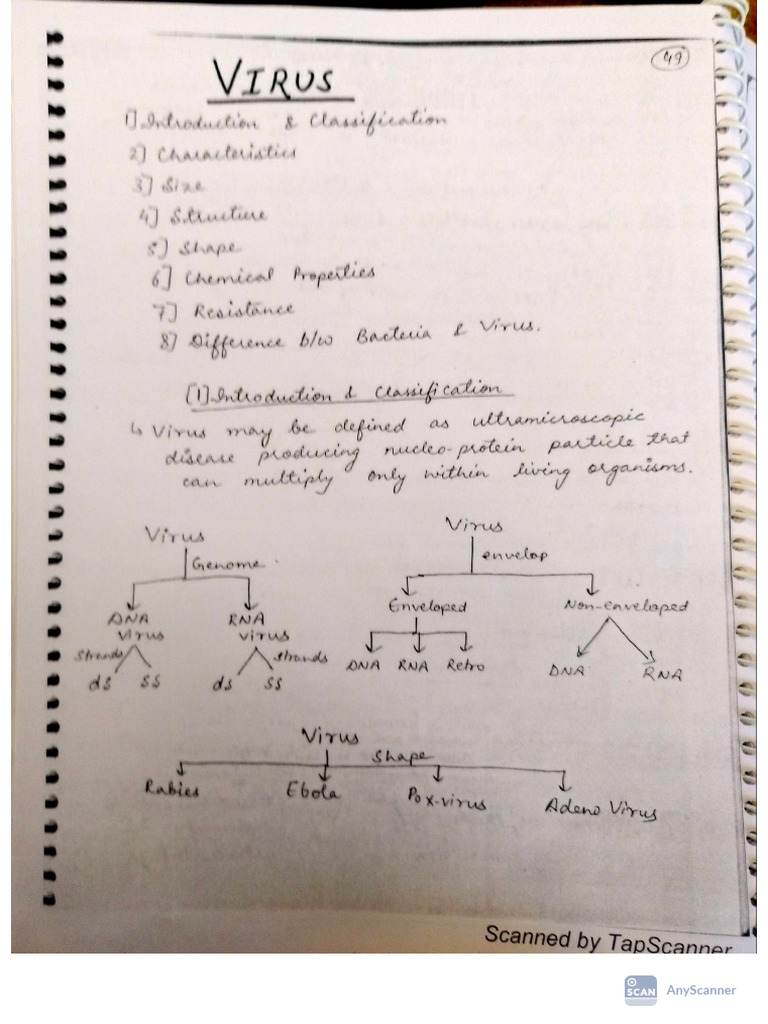 49
VIRUS
1] Introduction & Classification
2] Characteristics
3] Size
4] Structure
5] Shape
6] Chemical Properties
7] Resistance
8] Difference b/w Bacteria & Virus.
(1) Introduction & Classification
↳ Virus may be defined as ultramicroscopic
disease producing nucleo-protein particle that
can multiply only within living organisms.
Virus
Genome
DNA Virus
RNA Virus
Strands
strands
ds ss
ds ss
Virus
envelop
Enveloped
Non-enveloped
DNA RNA Retro
DNA RNA
Virus
Shape
Rabies Ebola Pox-virus Adeno Virus
Scanned by TapScanner
SCAN AnyScanner